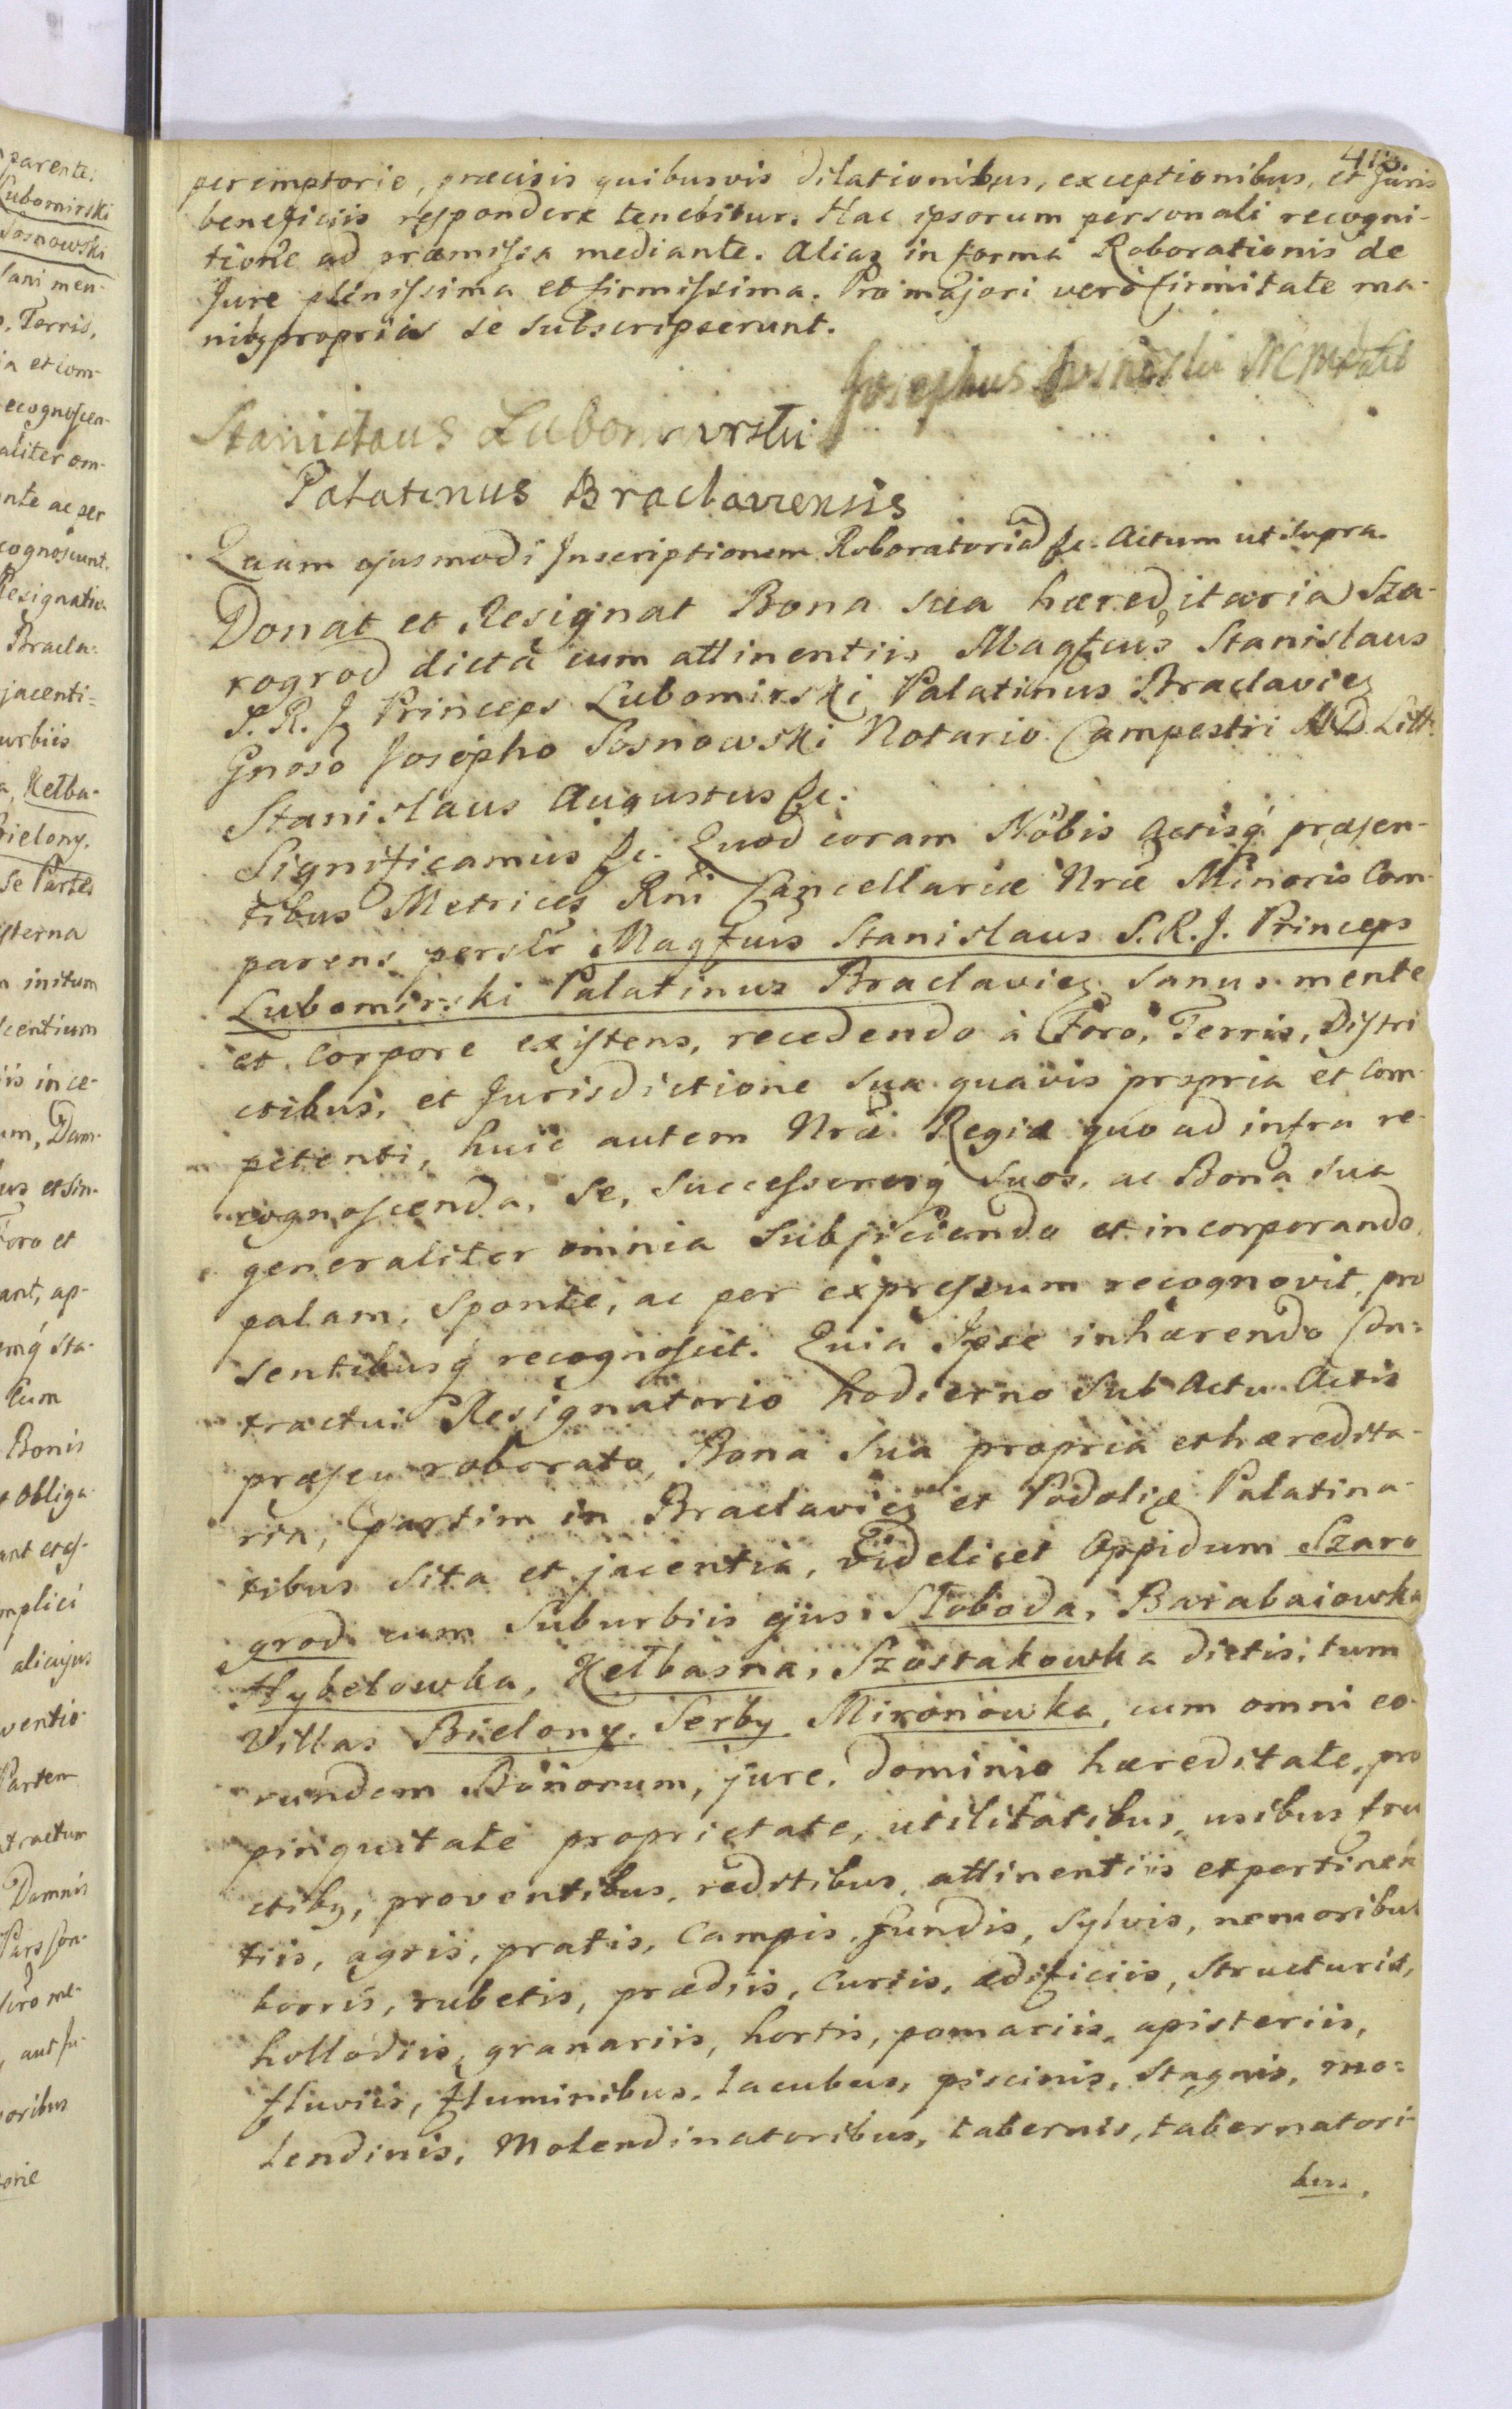 peremptorie, præcisis quibusvis dilationibus, exceptionibus, et Juris
beneficiis respondere tenebitur. Hac ipsorum personali recogni-
tione ad præmissa mediante. Alias in forma Roborationis de
Jure plenissima et firmissima. Pro majori vero firmitate ma-
nibq propriis se subscripserunt.
Josephus Sosnowski
Stanislaus Lubomirski
Palatinus Braclaviensis
Quam ejusmodi Inscriptionem Roboratoriã &c. Actum ut supra.
Donat et Resignat Bona sua hæreditaria Sza-
rogrod dicta cum attinentiis Magfcus Stanislaus
S. R. J. Princeps Lubomirski Palatinus Braclavieq
Gnoso Josepho Sosnowski Notario Campestri M. D. Litt.
Stanislaus Augustus &c.
Significamus &c. Quod coram Nobis Actisq́ præsen-
tibus Metrices Rni Cancellariæ Nræ Minoris Com-
parens persltr Magfcus Stanislaus S. R. J. Princeps
Lubomirski Palatinus Braclavieq sanus mente
et corpore existens, recedendo à Foro, Terris, Distri
ctibus, et Jurisdictione sua quavis propria et com-
petenti, huic autem Nræ Regiæ quo ad infra re-
cognoscenda, se, successoresq́ suos, ac Bona sua
generaliter omnia subjiciendo et incorporando
palam, sponte, ac per expressum recognovit, præ
sentibusq́ recognoscit. Quia Ipse inhærendo Con=
tractui Resignatorio hodierno sub Actu Actis
præsen roborato, Bona sua propria et hæredita-
ria, partim in Braclavieq et Podoliæ Palatina-
tibus sita et jacentia, videlicet Oppidum Szaro
grod cum Suburbiis ejus Słoboda, Barabaiowka
Hybelowka, Kełbasna, Szostakowka dictis, tum
Villas Bielony, Serby Mironowka, cum omni eo-
rundem Bonorum, jure, dominio hæreditate, pro
pinquitate proprietate, utilitatibus, usibus fru
ctibq, proventibus, reditibus, attinentiis et pertinen
tiis, agris, pratis, campis, fundis, sylvis, nemoribus
borris, rubetis, prædiis, curiis, ædificiis, structuris,
hollodiis, granariis, hortis, pomariis, apisteriis,
fluviis, fluminibus, lacubus, piscinis, stagnis, mo=
lendinis, Molendinatoribus, tabernis, tabernatori-
bus,